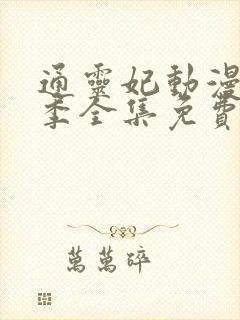 通靈妃動漫
季全集免費
萬萬碎